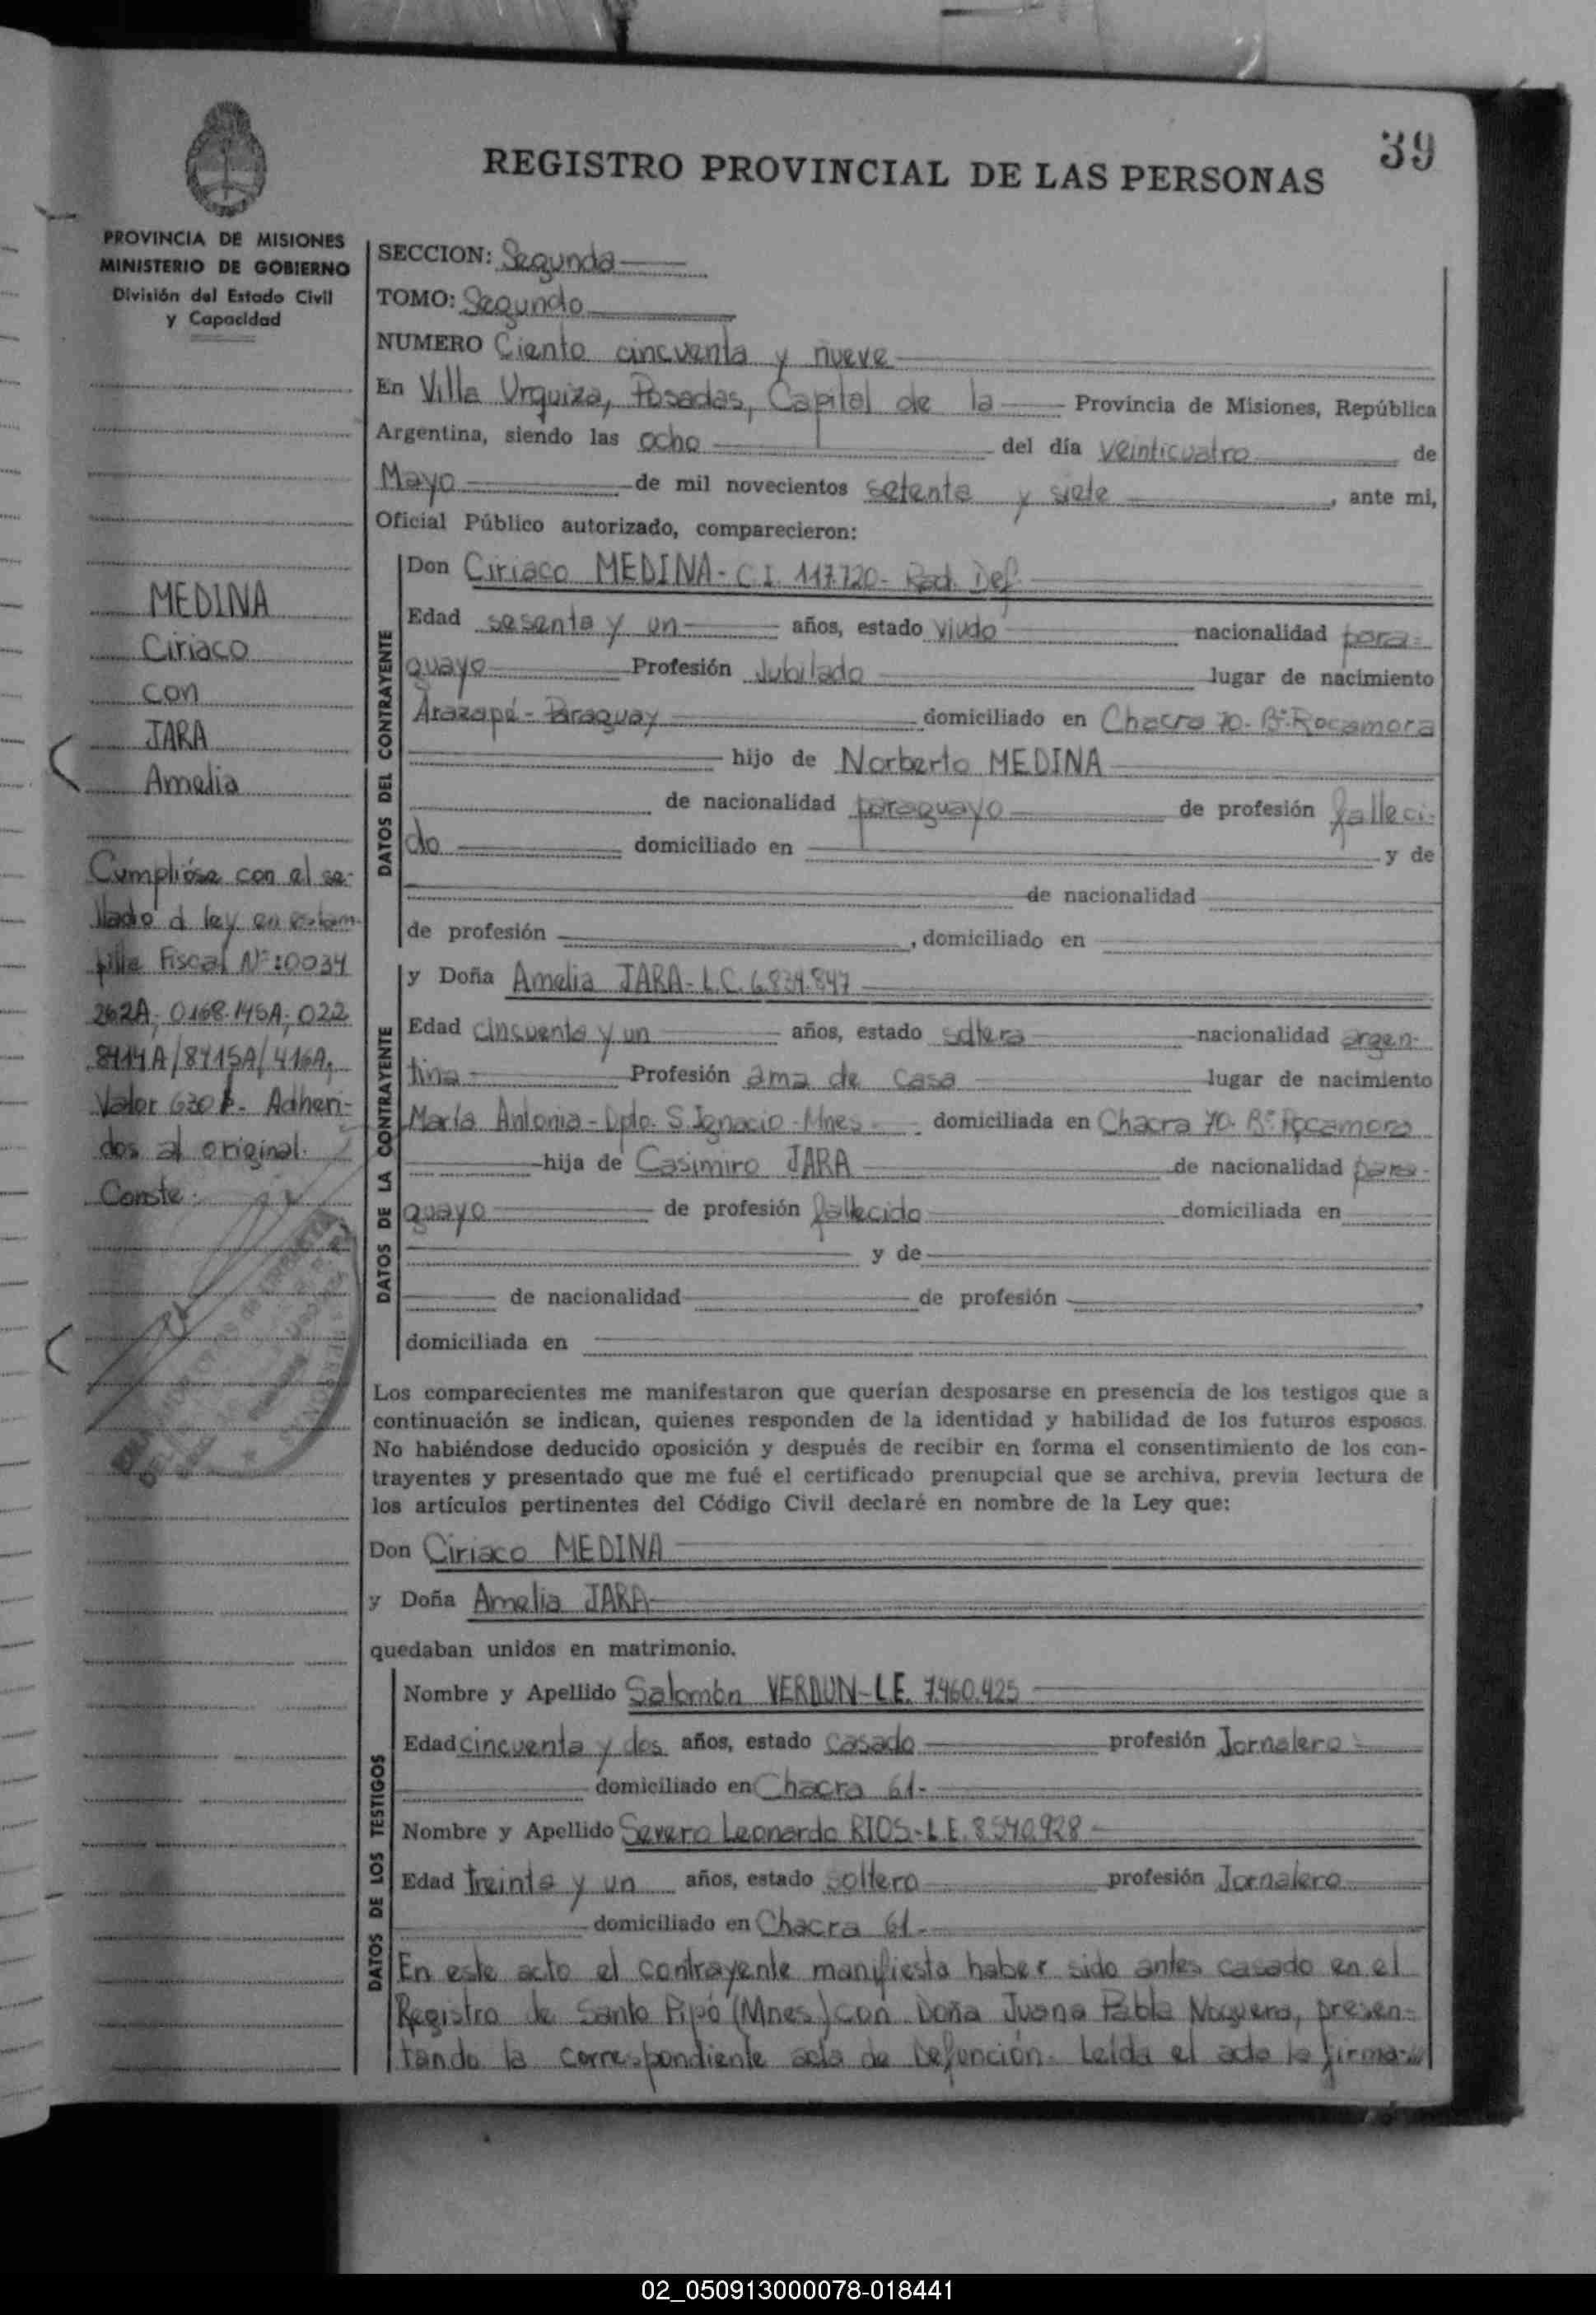 39
REGISTRO PROVINCIAL DE LAS PERSONAS
PROVINCIA DE MISIONES
MINISTERIO DE GOBIERNO
División del Estado Civil
y Capacidad
MEDINA
Ciriaco
con
JARA
Amelia
Cumplióse con el se-
llado d ley en estam-
pilla Fiscal Nº:0034
262A; 0168.145A; 022
8414A/8415A/416A;
Valor 630 $. Adheri-
dos al original.
Conste.
SECCION: Segunda
TOMO: Segundo
NUMERO Ciento cincuenta y nueve
En Villa Urquiza, Posadas, Capital de la Provincia de Misiones, República
Argentina, siendo las ocho del día veinticuatro de
Mayo de mil novecientos setenta y siete, ante mi,
Oficial Público autorizado, comparecieron:
DATOS DEL CONTRAYENTE
Don Ciriaco MEDINA- C.I. 117.720- Rad. Def.
Edad sesenta y un años, estado viudo nacionalidad para-
guayo Profesión Jubilado lugar de nacimiento
Arazapé - Paraguay domiciliado en Chacra 70- Bº Rocamora
hijo de Norberto MEDINA
de nacionalidad paraguayo de profesión falleci-
do domiciliado en y de
de nacionalidad
de profesión , domiciliado en
DATOS DE LA CONTRAYENTE
y Doña Amelia JARA- L.C. 6.834.847
Edad cincuenta y un años, estado soltera nacionalidad argen-
tina Profesión ama de casa lugar de nacimiento
María Antonia - Dpto. S. Ignacio - Mnes. domiciliada en Chacra 70- Bº Rocamora
hija de Casimiro JARA de nacionalidad para-
guayo de profesión fallecido domiciliada en
y de
de nacionalidad de profesión ,
domiciliada en
Los comparecientes me manifestaron que querían desposarse en presencia de los testigos que a
continuación se indican, quienes responden de la identidad y habilidad de los futuros esposos.
No habiéndose deducido oposición y después de recibir en forma el consentimiento de los con-
trayentes y presentado que me fué el certificado prenupcial que se archiva, previa lectura de
los artículos pertinentes del Código Civil declaré en nombre de la Ley que:
Don Ciriaco MEDINA
y Doña Amelia JARA
quedaban unidos en matrimonio.
DATOS DE LOS TESTIGOS
Nombre y Apellido Salomón VERDUN- L.E. 7.460.425
Edad cincuenta y dos años, estado casado profesión Jornalero
domiciliado en Chacra 61-
Nombre y Apellido Severo Leonardo RIOS- L.E. 8.540.928
Edad treinta y un años, estado soltero profesión Jornalero
domiciliado en Chacra 61-
En este acto el contrayente manifiesta haber sido antes casado en el
Registro de Santo Pipó (Mnes) con Doña Juana Pabla Noguera, presen-
tando la correspondiente acta de Defunción. Leída el acta la firma
02_050913000078-018441